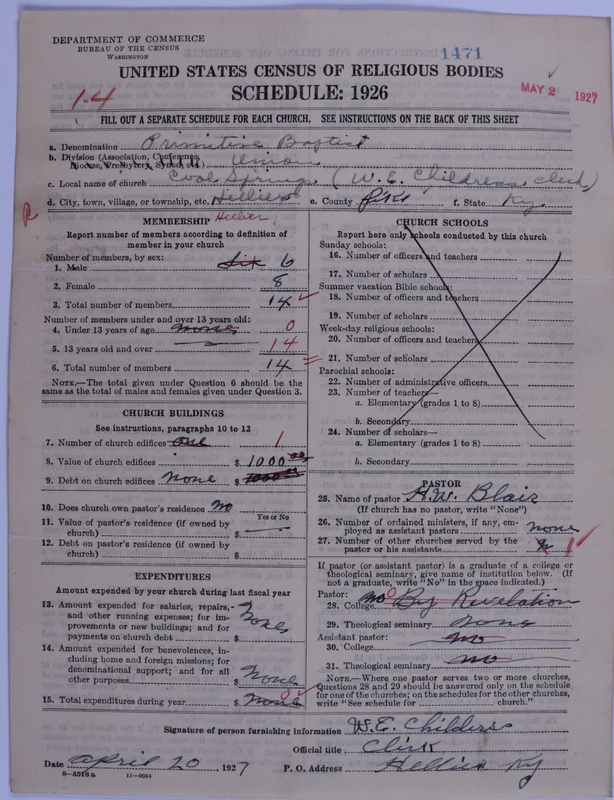 DEPARTMENT OF COMMERCE
BUREAU OF THE CENSUS
WASHINGTON
1471
UNITED STATES CENSUS OF RELIGIOUS BODIES
SCHEDULE: 1926
1-4
MAY 2 1927
FILL OUT A SEPARATE SCHEDULE FOR EACH CHURCH. SEE INSTRUCTIONS ON THE BACK OF THIS SHEET
a. Denomination Primitive Baptist
b. Division (Association, Conference, Diocese, Presbytery, Synod, etc.) Union
c. Local name of church Cool Spring (W. E. Childress, clerk)
d. City, town, village, or township, etc. Helliers e. County Pike f. State Ky
R
Hellier
MEMBERSHIP
Report number of members according to definition of
member in your church
Number of members, by sex:
1. Male six 6
2. Female 8
3. Total number of members 14
Number of members under and over 13 years old:
4. Under 13 years of age none 0
5. 13 years old and over 14
6. Total number of members 14
NOTE.—The total given under Question 6 should be the
same as the total of males and females given under Question 3.
CHURCH BUILDINGS
See instructions, paragraphs 10 to 12
7. Number of church edifices one 1
8. Value of church edifices $ 1000.00
9. Debt on church edifices none $
10. Does church own pastor's residence no
Yes or No
11. Value of pastor's residence (if owned by
church) $
12. Debt on pastor's residence (if owned by
church) $
EXPENDITURES
Amount expended by your church during last fiscal year
13. Amount expended for salaries, repairs,
and other running expenses; for im-
provements or new buildings; and for
payments on church debt $ None
14. Amount expended for benevolences, in-
cluding home and foreign missions; for
denominational support; and for all
other purposes $ None
15. Total expenditures during year $ None 0
CHURCH SCHOOLS
Report here only schools conducted by this church
Sunday schools:
16. Number of officers and teachers
17. Number of scholars
Summer vacation Bible schools:
18. Number of officers and teachers
19. Number of scholars
Week-day religious schools:
20. Number of officers and teachers
21. Number of scholars
Parochial schools:
22. Number of administrative officers
23. Number of teachers—
a. Elementary (grades 1 to 8)
b. Secondary
24. Number of scholars—
a. Elementary (grades 1 to 8)
b. Secondary
PASTOR
25. Name of pastor H. W. Blair
(If church has no pastor, write "None")
26. Number of ordained ministers, if any, em-
ployed as assistant pastors none
27. Number of other churches served by the
pastor or his assistants 1
If pastor (or assistant pastor) is a graduate of a college or
theological seminary, give name of institution below. (If
not a graduate, write "No" in the space indicated.)
Pastor:
28. College no By Revelation
29. Theological seminary none
Assistant pastor:
30. College no
31. Theological seminary no
NOTE.—Where one pastor serves two or more churches,
Questions 28 and 29 should be answered only on the schedule
for one of the churches; on the schedules for the other churches,
write "See schedule for church."
Signature of person furnishing information W. E. Childers
Official title Clerk
Date April 20, 1927 P. O. Address Hellier Ky
8—5518a 11—9064